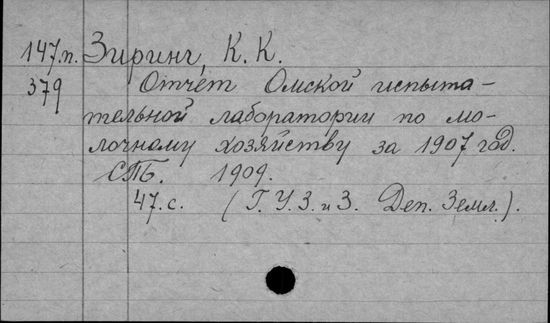 147.п. Зиринг, К. К.
379 Отчёт Омской испыта-
тельной лаборатории по мо-
лочному хозяйству за 1907 год.
СПБ. 1909.
47. с. (Г. У. З. и З. Деп. Земл.).